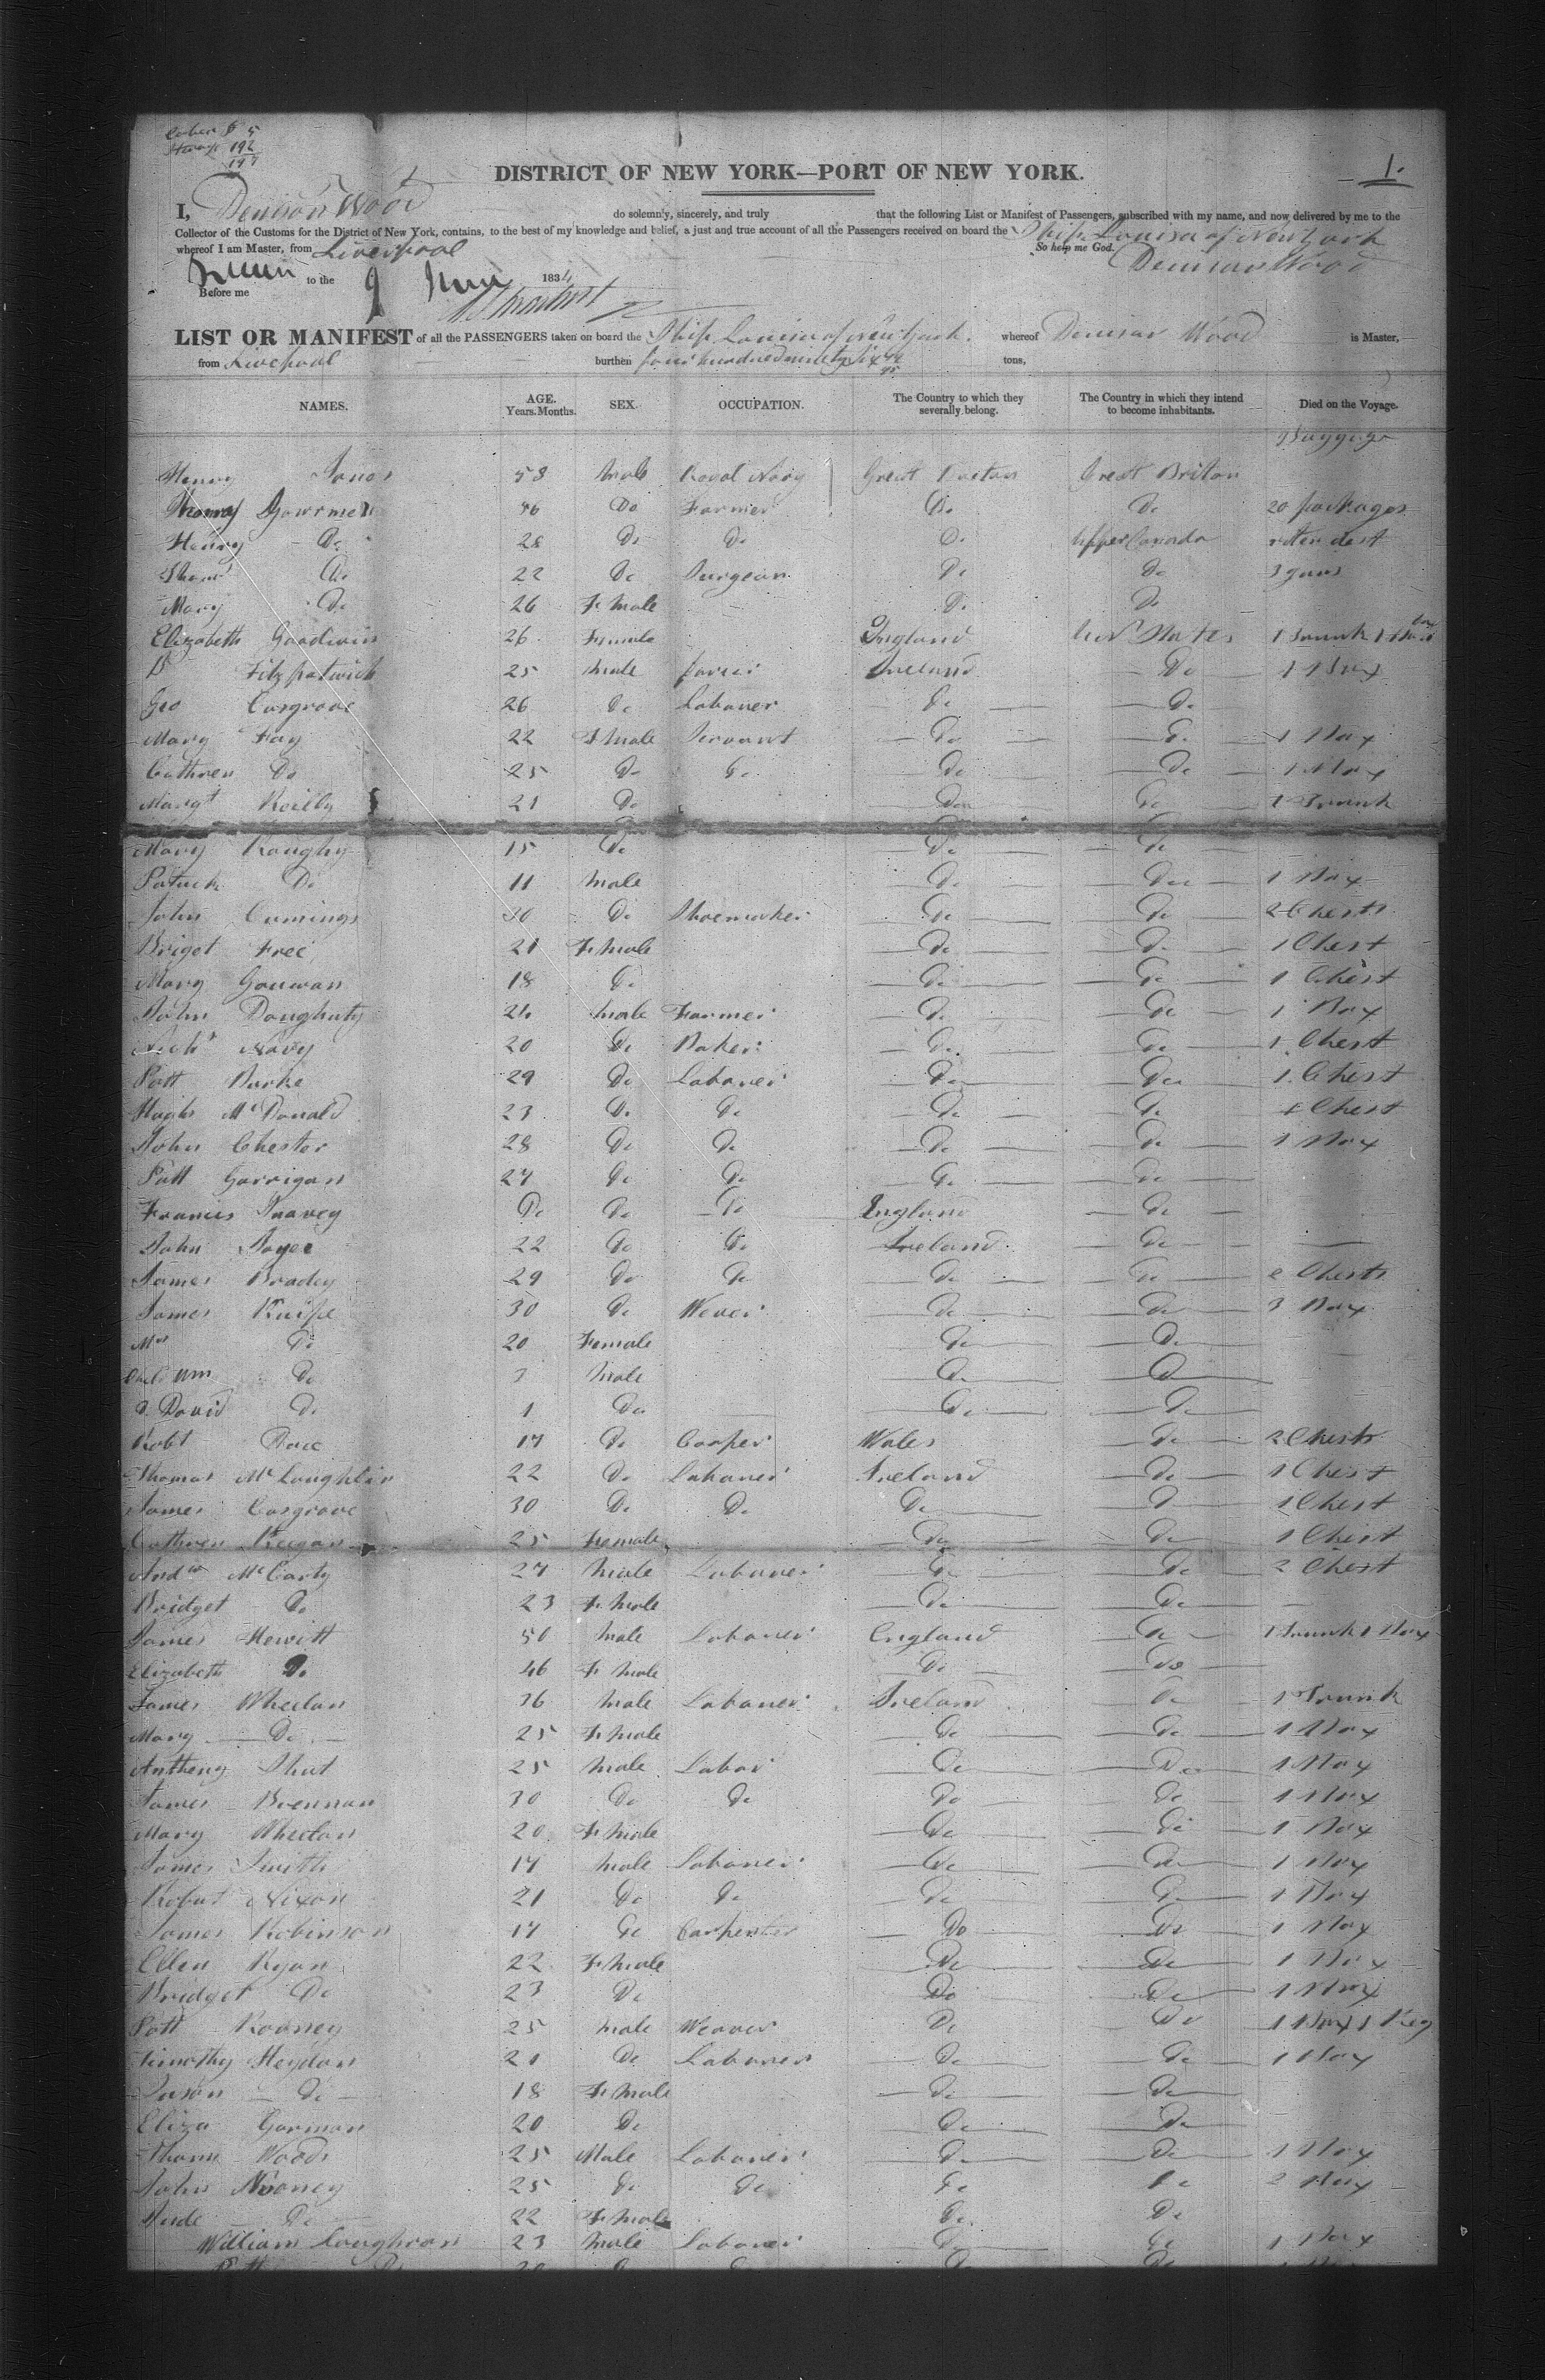 Cabin 5
Steerage 192
197
1.
DISTRICT OF NEW YORK—PORT OF NEW YORK.
I, Denison Wood do solemnly, sincerely, and truly that the following List or Manifest of Passengers, subscribed with my name, and now delivered by me to the
Collector of the Customs for the District of New York, contains, to the best of my knowledge and belief, a just and true account of all the Passengers received on board the Ship Louisa of New York
whereof I am Master, from Liverpool So help me God.
Denison Wood
Sworn to the 9 June 1834
Before me
LIST OR MANIFEST of all the PASSENGERS taken on board the Ship Louisa of New York. whereof Denison Wood is Master,
from Liverpool burthen four hundred ninety six tons,
NAMES. AGE. Years. Months. SEX. OCCUPATION. The Country to which they severally belong. The Country in which they intend to become inhabitants. Died on the Voyage.
Baggage
Henry Jones 58 Male Royal Navy Great Britan Great Briton
Thomas 46 Do Farmer Do Do 20 packages
Henry Do 28 Do Do Do Upper Canada
Do 22 Do Surgeon Do Do 3 guns
Mary Do 26 Female Do Do
Elizabeth Goodwin 26 Female England States 1 Trunk 1
Fitzpatrick 25 Male Ireland Do 1 Box
Geo Cosgrove 26 Do Labourer Do Do
Mary Fay 22 Female Servant Do Do 1 Box
Cathren Do 25 Do Do Do Do 1 Box
Margt Reilly 21 Do Do Do 1 Trunk
Mary 15 Do Do Do
Patrick Do 11 Male Do Do 1 Box
John Cumings 30 Do Shoemaker Do Do 2 Chests
Briget Free 21 Female Do Do 1 Chest
Mary Gouwan 18 Do Do Do 1 Chest
John Doughuty 24 Male Farmer Do Do 1 Box
20 Do Baker Do Do 1 Chest
Patt Burke 29 Do Labourer Do Do 1 Chest
Hugh McDonald 23 Do Do Do Do Chest
John Chester 28 Do Do Do Do 1 Box
Patt Garrigan 27 Do Do Do Do
Francis Do Do Do England Do
John 22 Do Do Ireland Do
James Brady 29 Do Do Do Do 2 Chests
James Knipe 30 Do Wever Do Do 3 Box
Mrs Do 20 Female Do Do
Wm Do 3 Male Do Do
David Do 1 Do Do Do
Robt 17 Do Cooper Wales Do 2 Chests
Thomas McLoughlin 22 Do Labourer Ireland Do 1 Chest
James Cosgrove 30 Do Do Do Do 1 Chest
Cathren Keegan 25 Female Do Do 1 Chest
Andw McCarty 27 Male Labourer Do Do 2 Chest
Bridget Do 23 Female Do Do
James Hewitt 50 Male Labourer England Do 1 Trunk 1 Box
Elizabeth Do 46 Female Do Do
James Wheelan 36 Male Labourer Ireland Do 1 Trunk
Mary Do 25 Female Do Do 1 Box
Antheny 25 Male Labor Do Do 1 Box
James Brennan 30 Do Do Do Do 1 Box
Mary Wheelan 20 Female Do Do 1 Box
James Smith 17 Male Labourer Do Do 1 Box
Robert Nixon 21 Do Do Do Do 1 Box
James Robinson 17 Do Carpenter Do Do 1 Box
Ellen Ryan 22 Female Do Do 1 Box
Bridget Do 23 Do Do Do 1 Box
Patt Rooney 25 Male Weaver Do Do 1 Box 1 Keg
Timothy Heydon 21 Do Labourer Do Do 1 Box
Susan Do 18 Female Do Do
Eliza Gorman 20 Do Do Do
Thoms Woods 25 Male Labourer Do Do 1 Box
John Mooney 25 Do Do Do Do 2 Box
Jude Do 22 Female Do Do
William Loughran 23 Male Labourer Do Do 1 Box